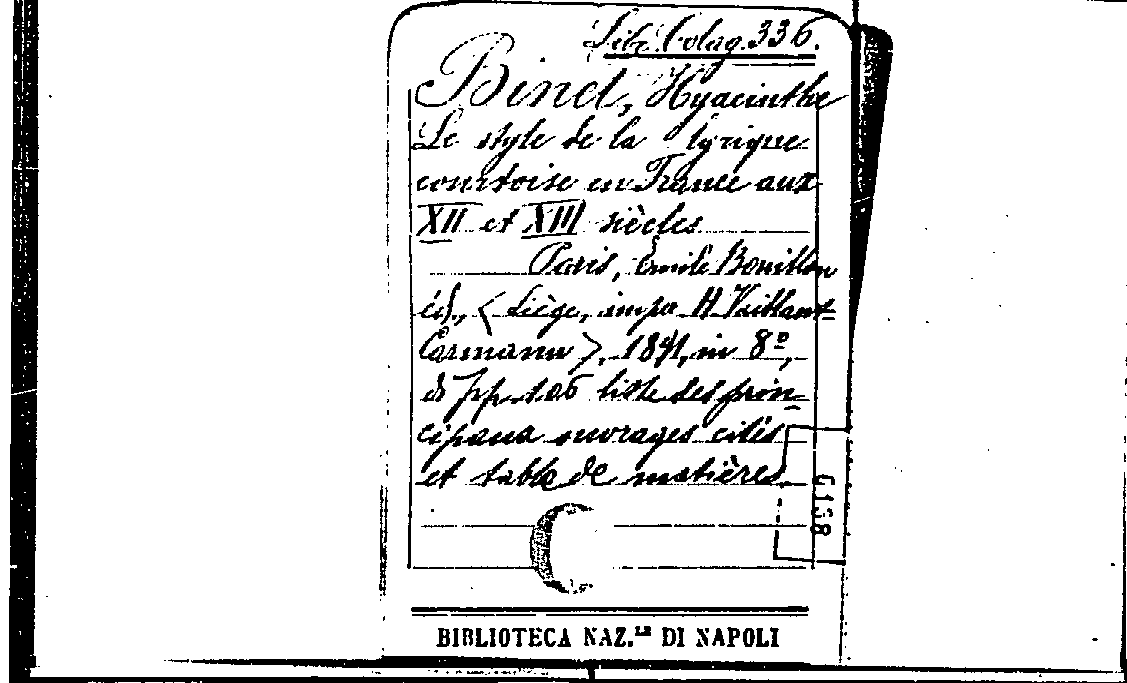 336.
Binet, Hyacinthe
Le style de la lyrique
courtoise en France aux
XII et XIII siècles
Paris, Émile Bouillon
éd., < Liège, impr. H Vaillant-
Carmanne >, 1891, in 8º,
di pp. 106 liste des prin-
cipaux ouvrages cités
et table de matières.
6158
BIBLIOTECA NAZ.LE DI NAPOLI